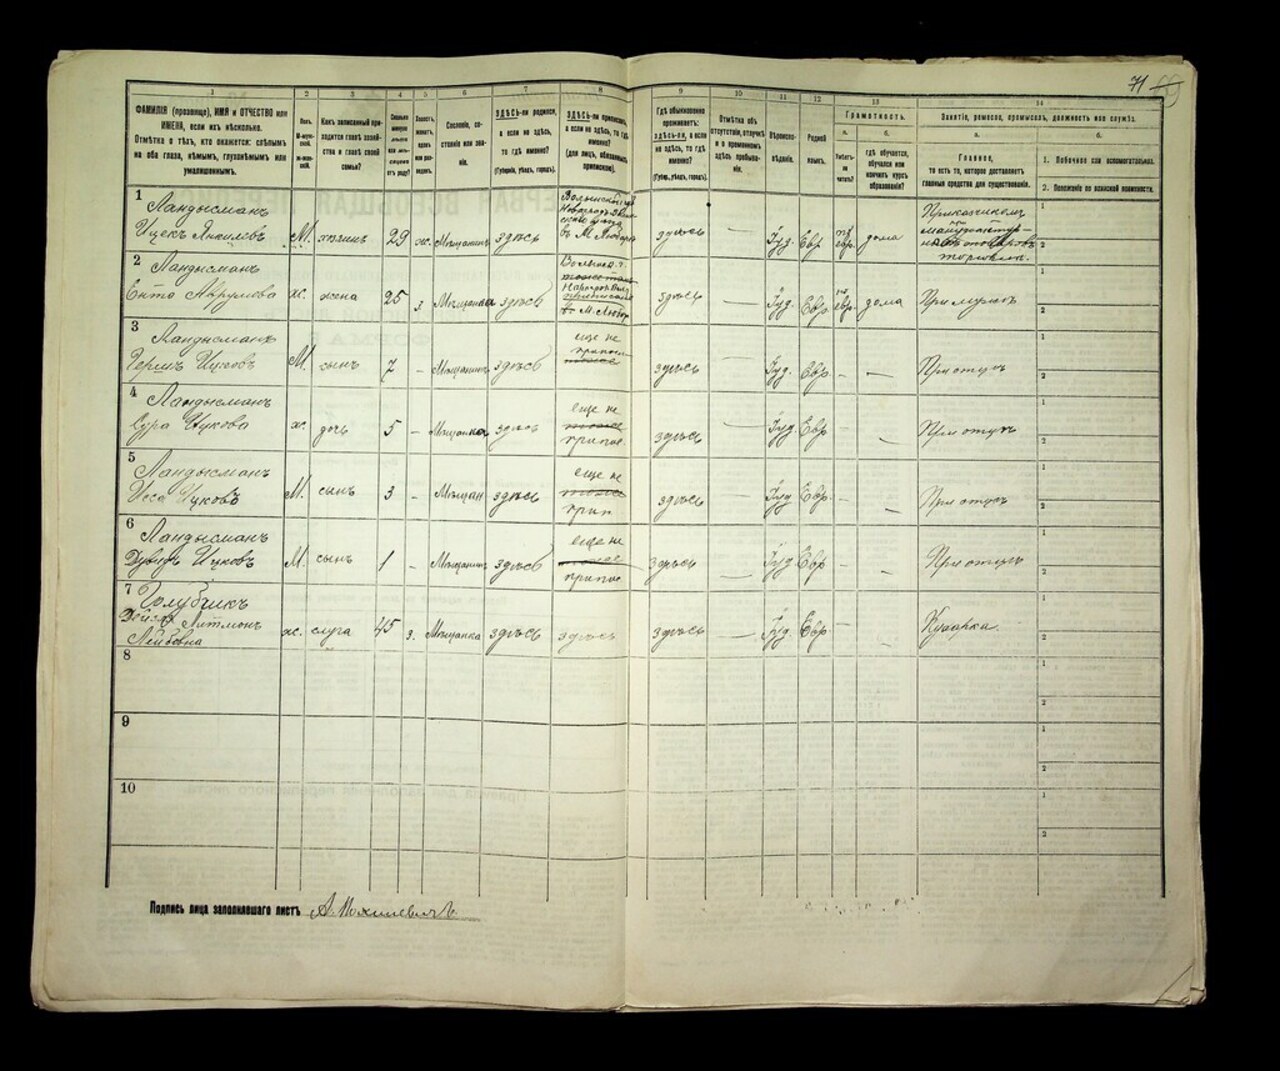 71
1 2 3 4 5 6 7 8 9 10 11 12 13 14
ФАМИЛІЯ (прозвище), ИМЯ и ОТЧЕСТВО или
ИМЕНА, если ихъ нѣсколько.
Отмѣтка о тѣхъ, кто окажется: слѣпымъ
на оба глаза, нѣмымъ, глухонѣмымъ или
умалишеннымъ.
Полъ.
М-мужской.
Ж-женскій.
Какъ записанный приходится
главѣ хозяйства
и главѣ своей
семьи?
Сколько
минуло
лѣтъ
или мѣсяцевъ
отъ роду?
Холостъ,
женатъ,
вдовъ
или разведенъ.
Сословіе, состояніе
или званіе.
ЗДѢСЬ-ли родился,
а если не здѣсь,
то гдѣ именно?
(Губернія, уѣздъ, городъ).
ЗДѢСЬ-ли приписанъ,
а если не здѣсь, то гдѣ
именно?
(для лицъ, обязанныхъ
припиской).
Гдѣ обыкновенно
проживаетъ:
здѣсь-ли, а если
не здѣсь, то гдѣ
именно?
(Губерн., уѣздъ, городъ).
Отмѣтка объ
отсутствіи, отлучкѣ
и о временномъ
здѣсь пребываніи.
Вѣроисповѣданіе.
Родной
языкъ.
Грамотность.
а. б.
Умѣетъ-ли
читать?
гдѣ обучается,
обучался или
кончилъ курсъ
образованія?
Занятіе, ремесло, промыселъ, должность или служба.
а. б.
Главное,
то есть то, которое доставляетъ
главныя средства для существованія.
1. Побочное или вспомогательное.
2. Положеніе по воинской повинности.
1 Ландысманъ
Ицекъ Янкилевъ М. хозяинъ 29 ж. Мѣщанинъ здѣсь
Волынской губ
въ М. Любарѣ
здѣсь Іуд. Евр по евр. дома
Приказчикомъ
торговли.
1
2
2 Ландысманъ
Ента Аврумова ж. жена 25 з. Мѣщанка здѣсь
М. Любар
здѣсь — Іуд. Евр. по евр. дома При мужѣ
1
2
3 Ландысманъ
Гершъ Ицковъ М. сынъ 7 – Мѣщанинъ здѣсь
еще не
здѣсь — Іуд. Евр. – — При отцѣ
1
2
4 Ландысманъ
Сура Ицкова ж. дочь 5 – Мѣщанка здѣсь
еще не
тоже
припис
здѣсь — Іуд. Евр. – — При отцѣ
1
2
5 Ландысманъ
Иося Ицковъ М. сынъ 3 – Мѣщан здѣсь
еще не
тоже
прип
здѣсь — Іуд Евр. – — При отцѣ
1
2
6 Ландысманъ
Дувидъ Ицковъ М. сынъ 1 – Мѣщанинъ здѣсь
еще не
припис
здѣсь — Іуд Евр – – При отцѣ
1
2
7 Голубчик
Лейбовна ж. слуга 45 з. Мѣщанка здѣсь здѣсь здѣсь — Іуд. Евр. – Кухарка.
1
2
8
1
2
9
1
2
10
1
2
Подпись лица заполнявшаго листъ